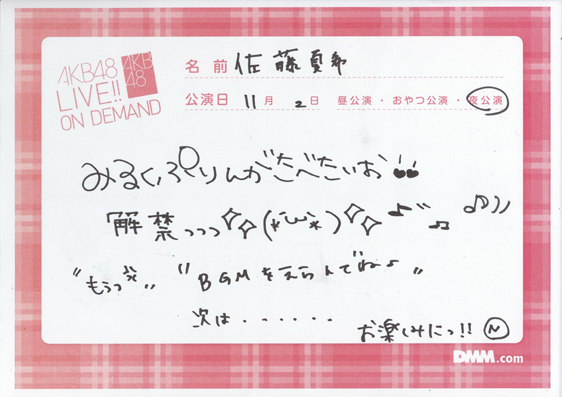 AKB48
LIVE!!
ON DEMAND
AKB
48
名前 佐藤夏希
公演日 11月 2日 昼公演・おやつ公演・夜公演
みるくぷりんがたべたいお
解禁っっっ(*´ω`*)♪♫♪
"もうっ
"BGMをえらんでね♪"
次は・・・・・・
お楽しみにっ!! N
DMM.com